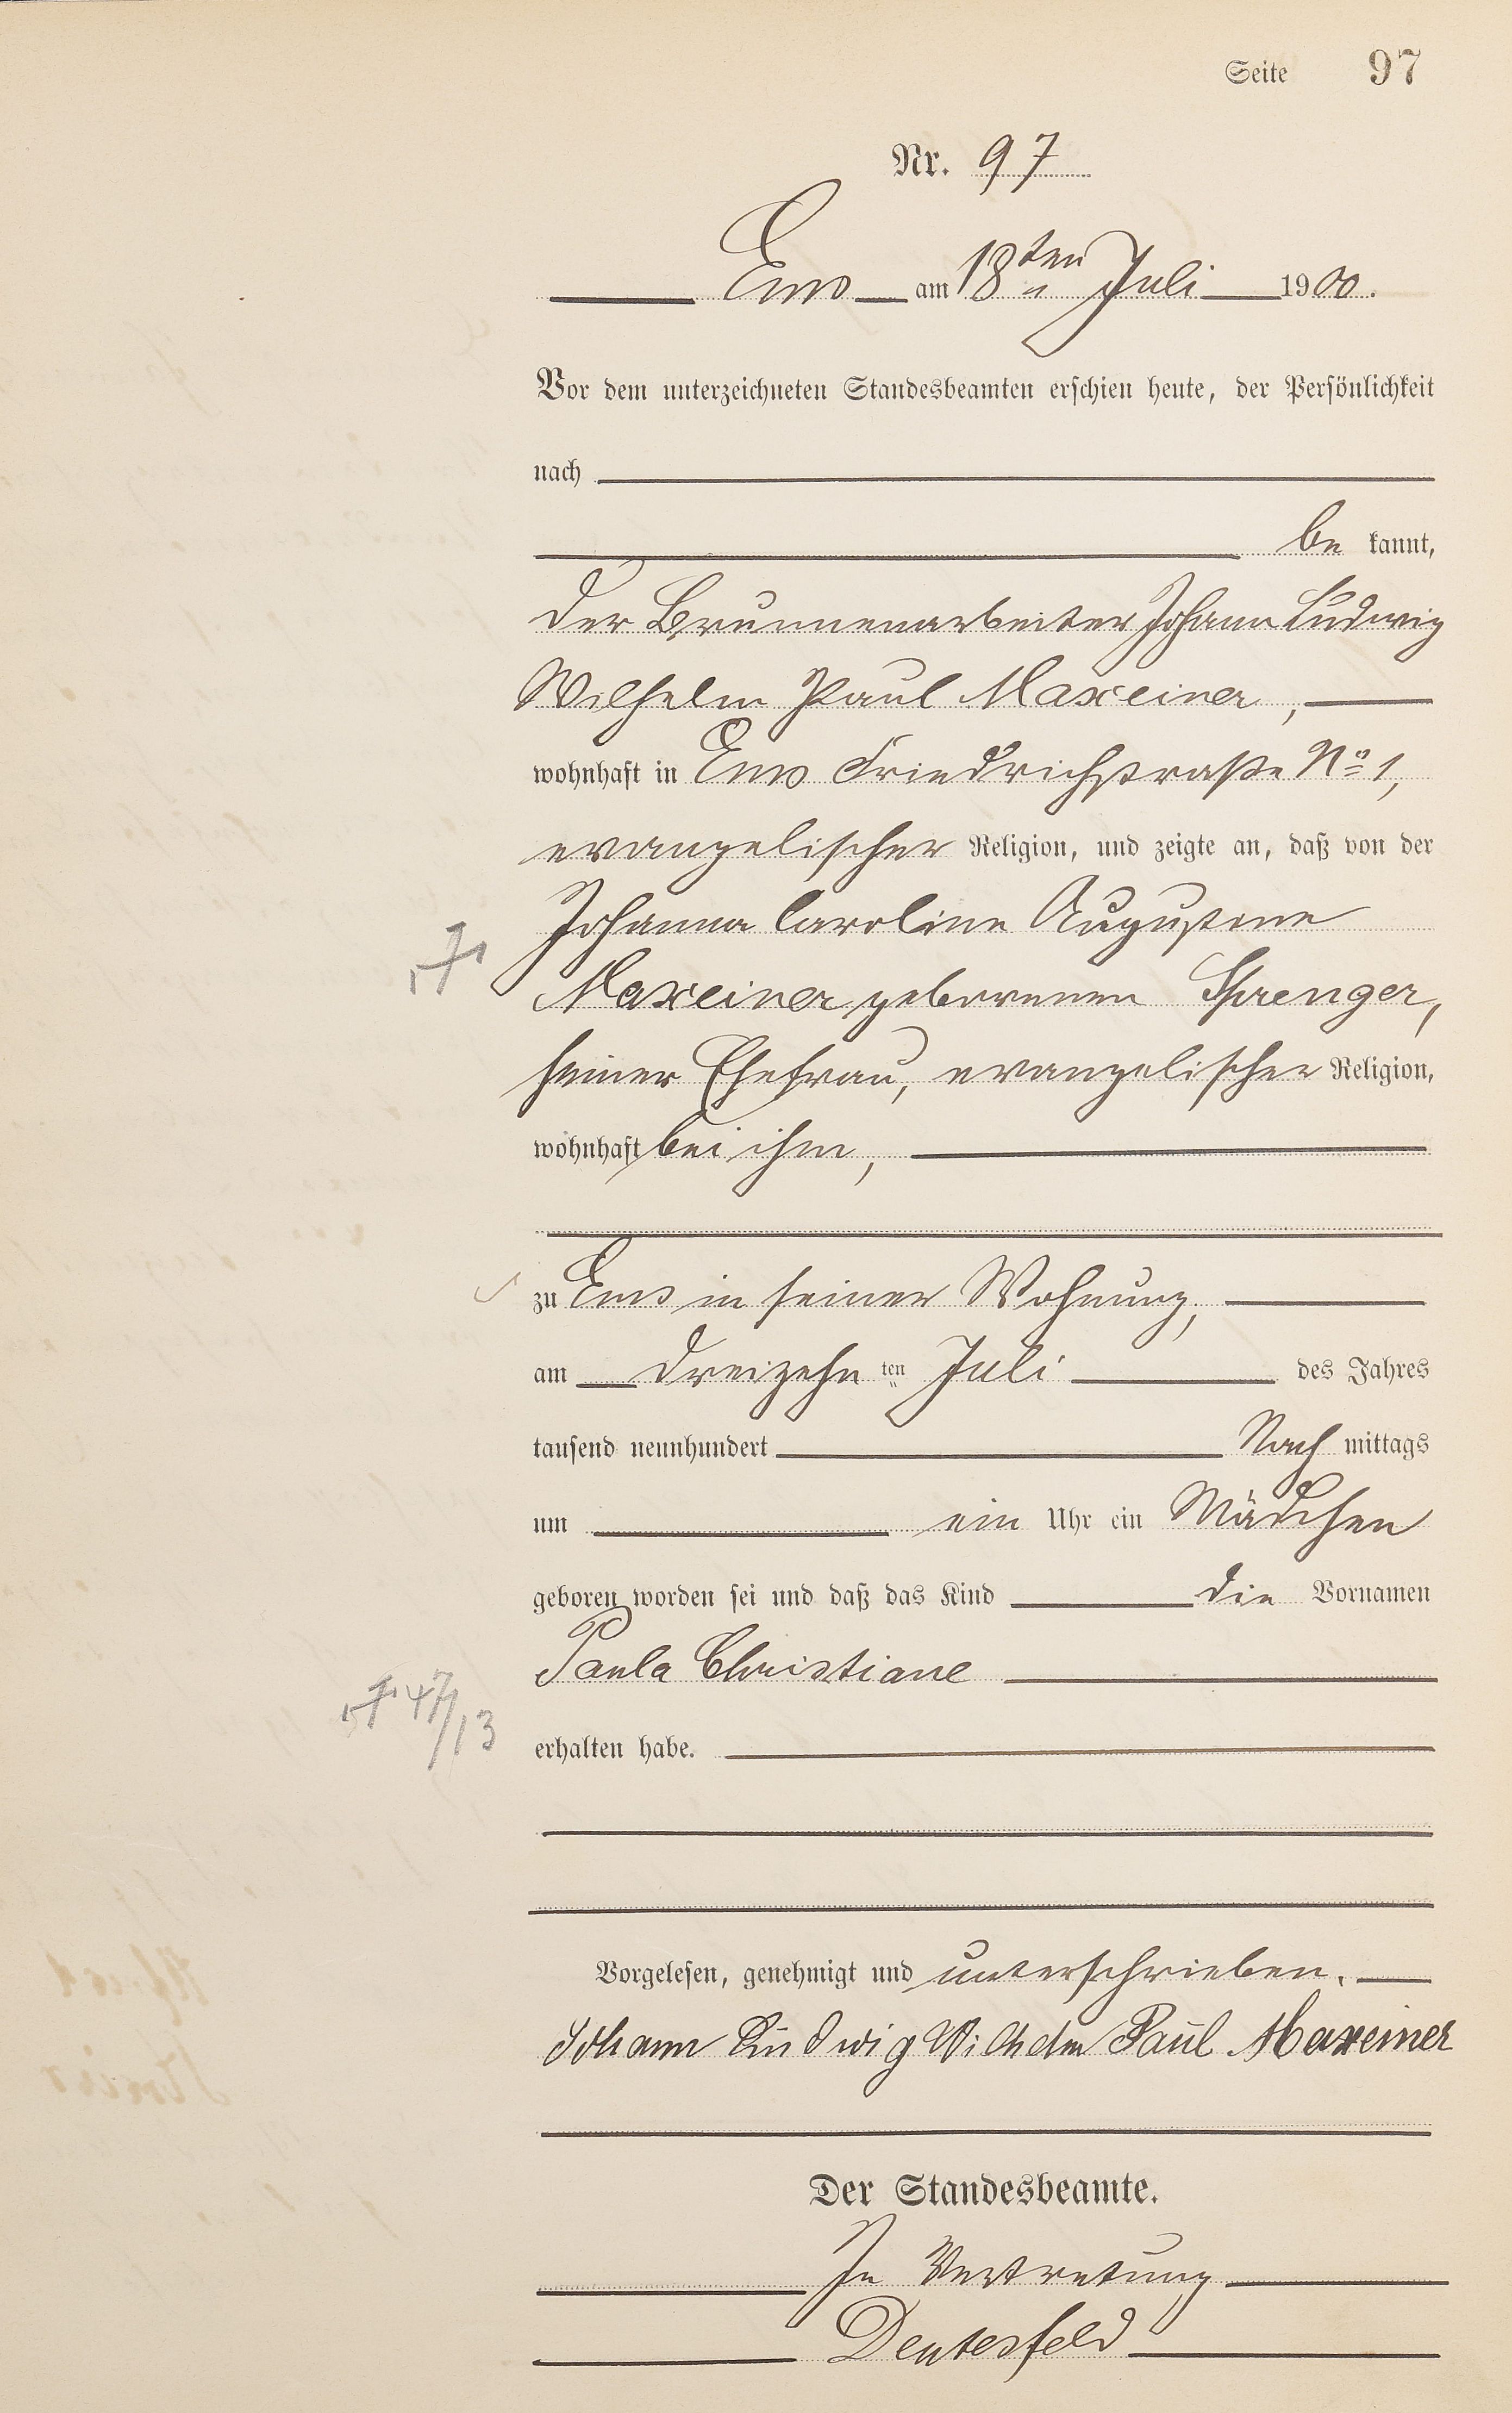 Seite 97
Nr. 97
Ems am 18ten Juli 1900.
Vor dem unterzeichneten Standesbeamten erschien heute, der Persönlichkeit
nach
be kannt,
der Brunnenarbeiter Johann Ludwig
Wilhelm Paul Maxeiner,
wohnhaft in Ems Friedrichstraße No 1,
evangelischer Religion, und zeigte an, daß von der
Johanna Caroline Augustine
Maxeiner geborenen Sprenger,
seiner Ehefrau, evangelischer Religion,
wohnhaft bei ihm,
zu Ems in seiner Wohnung,
am dreizehn ten Juli des Jahres
tausend neunhundert Nach mittags
um ein Uhr ein Mädchen
geboren worden sei und daß das Kind die Vornamen
Paula Christiane
47/13
erhalten habe.
Vorgelesen, genehmigt und unterschrieben.
Johann Ludwig Wilhelm Paul Maxeiner
Der Standesbeamte.
In Vertretung
Deutesfeld